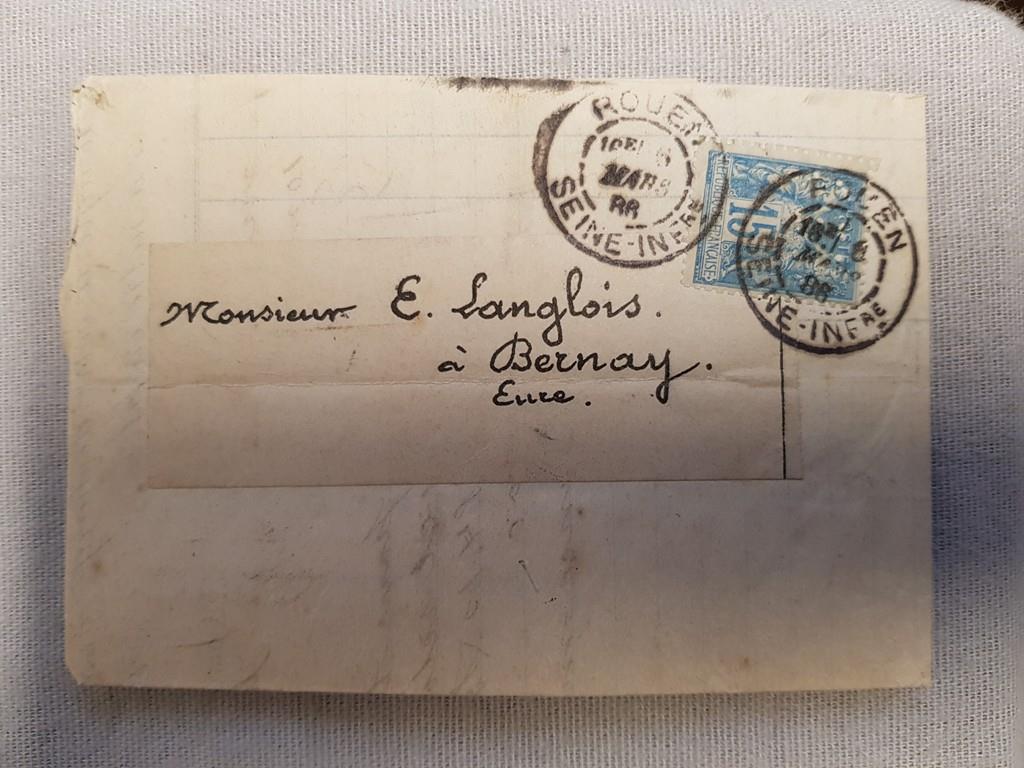 ROUEN
1ᴱ
MARS
88
SEINE-INFRE
REPUBLIQUE FRANÇAISE
15
ROUEN
SEINE-INFRE
Monsieur E. Langlois.
à Bernay.
Eure.